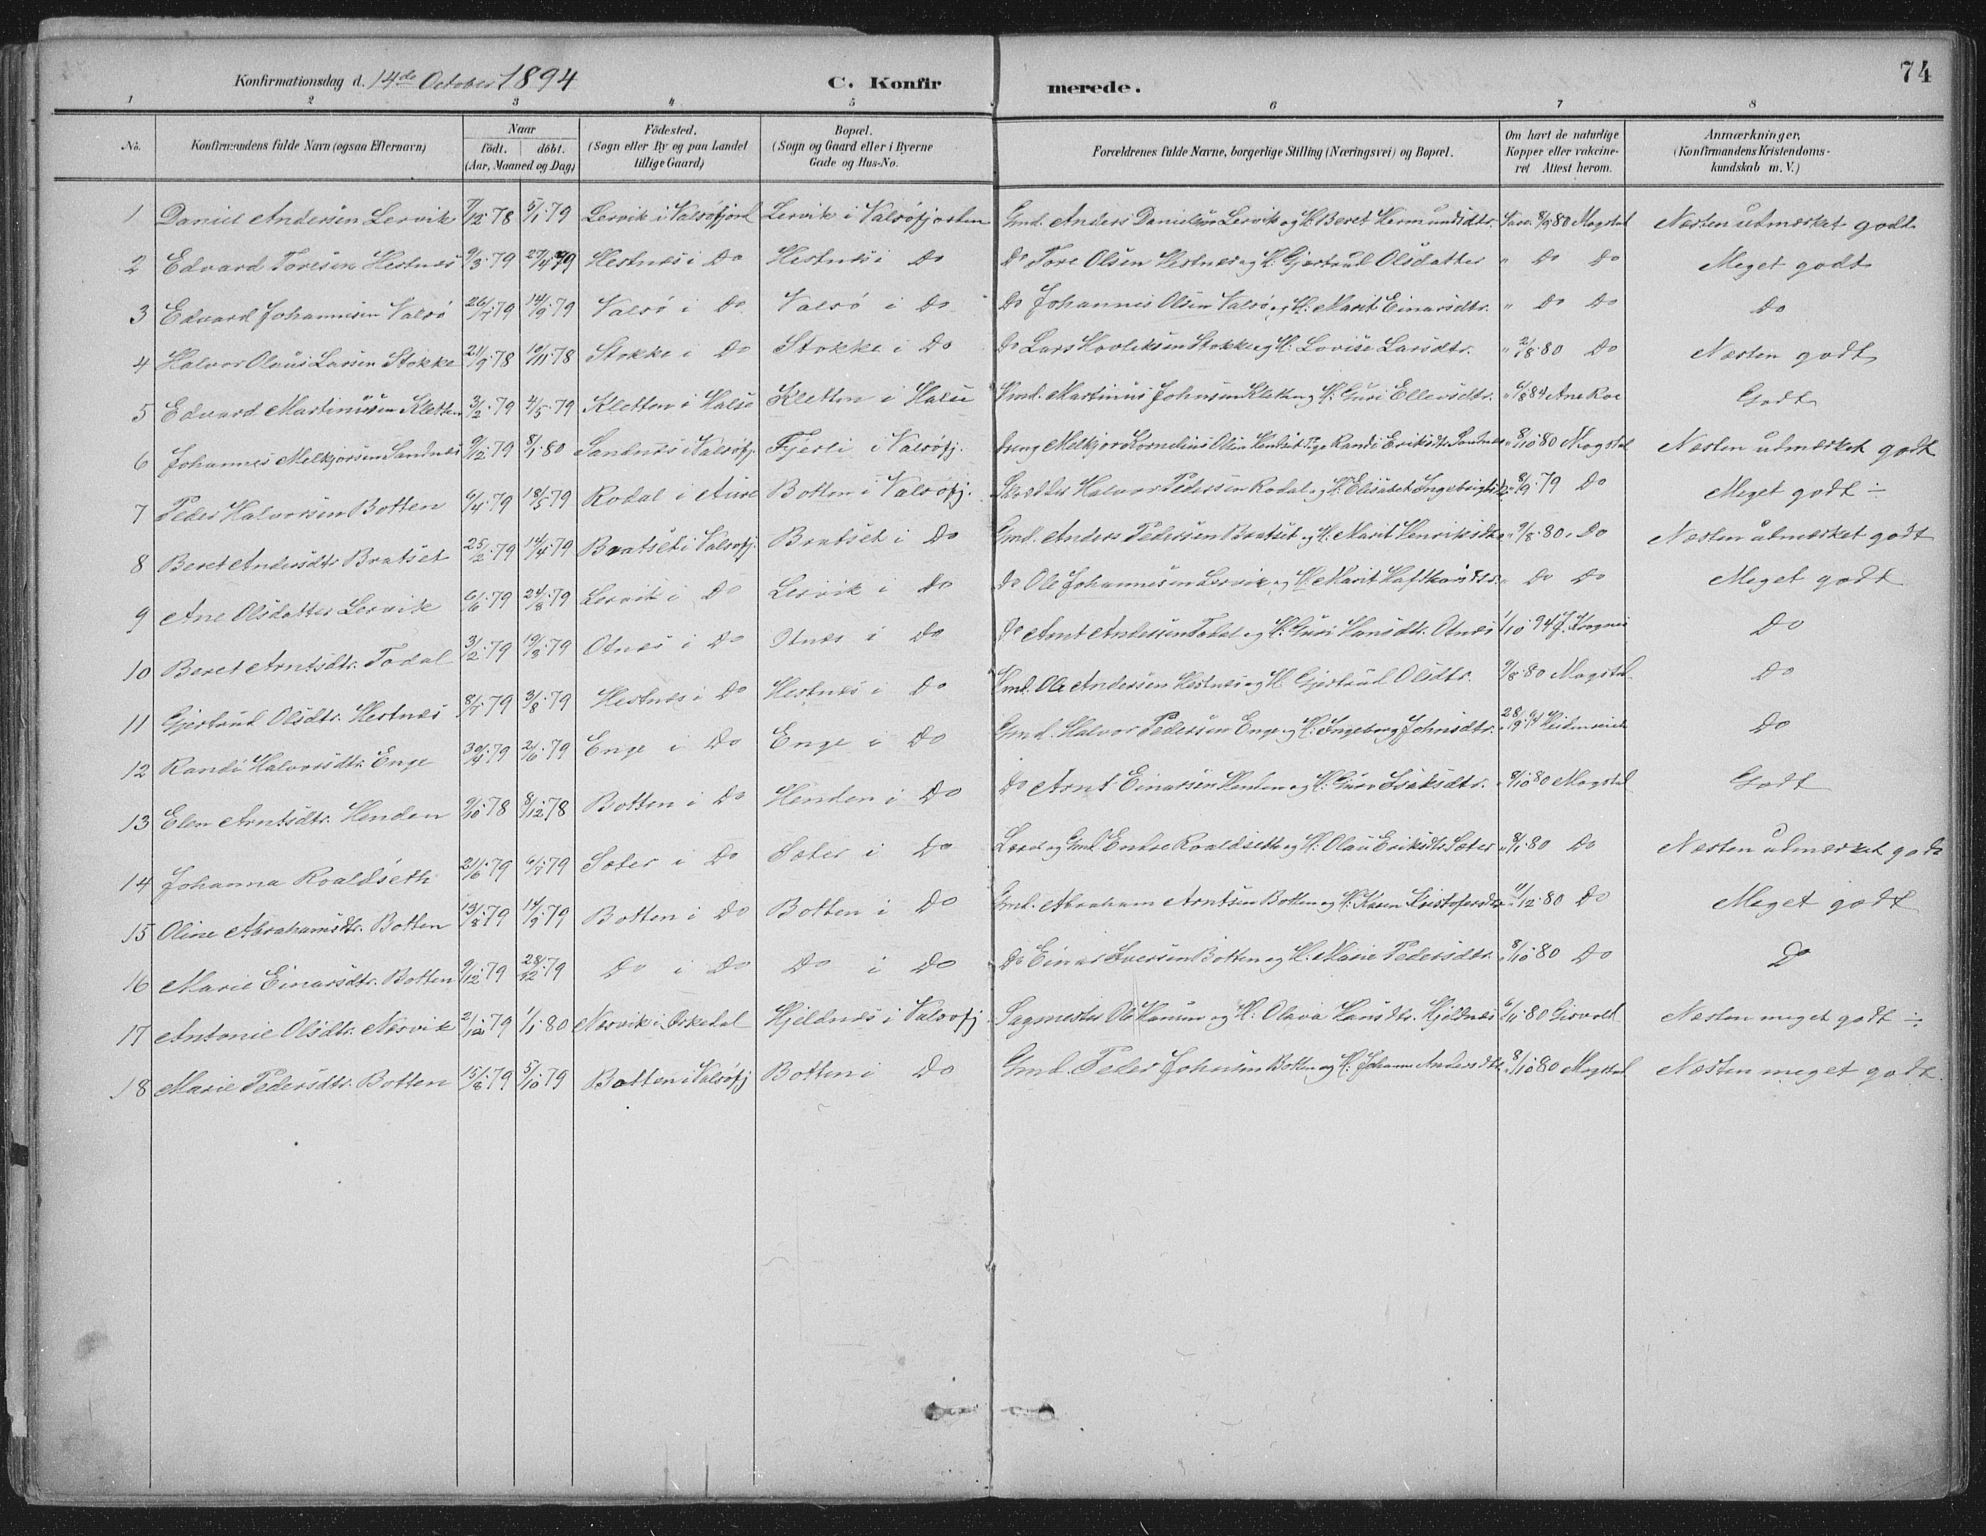 Konfirmationsdag d. 14de October 1894 C. Konfirmerede. 74
1 2 3 4 5 6 7 8
No. Konfirmandens fulde Navn (ogsaa Efternavn) Naar födt. döbt. (Aar, Maaned og Dag) Födested. (Sogn eller By og paa Landet tillige Gaard) Bopæl. (Sogn og Gaard eller i Byerne Gade og Hus-No. Forældrenes fulde Navne, borgerlige Stilling (Næringsvei) og Bopæl. Om havt de naturlige Kopper eller vaccineret Attest herom. Anmærkninger, (Konfirmandens Kristendomskundskab m. V.)
1 Daniel Andersen Lervik 7/12.78 5/1.79 Lervik i Valsøfjord Lervik i Valsøfjorden Gmd. Anders Danielsen Lervik og H. Beret Hermundsdtr. Vacc. 8/9 80 Mogstad Næsten udmærket godt
2 Edvard Toresen Hestnes 9/3.79 27/4 79 Hestnæs i Do Hestnæs i Do Do Tore Olsen Hestnæs og H. Gjertrud Olsdatter " Do Do Meget godt
3 Edvard Johannesen Valsø 26/7 79 14/9.79 Valsø i Do Valsø i Do Do Johannes Olsen Valsø og H. Marit Einarsdtr. " Do Do Do
4 Halvor Olaus Larsen Stokke 21/9.78 10/11.78 Stokke i Do Stokke i Do Do Lars Stokke og H. Lovise Larsdtr. " 2/8.80 Do Næsten godt
5 Edvard Martinussen Kletten 3/2.79 4/5.79 Kletten i Halse Kletten i Halse Martinus Johnsen og H. Guri Ellevsdtr. " 6/8 84 Ane Roe Godt
6 Johannes Melkjorsen Sandnes 9/12.79 8/1.80 Sandnes i Valsøfj. Fjerli i Valsøfj. Ung Melkjor Kornelius Olsen Pige Randi Eriksdtr Sandnes " 8/10 80 Mogstad Næsten udmærket godt
7 Peder Halvorsen Botten 6/4.79 18/5 79 Rodal i Aure Botten i Valsøfj. Skrædder Halvor Pedersen Rodal og H. Elisabet 8/9 79 Do Meget godt ÷
8 Beret Andersdtr Bratset 25/2.79 14/4 79 Bratset i Valsøfj. Bratset i Do Gmd. Anders Pedersen Bratset og H. Marit Henriksdtr 9/8.80. Do Næsten udmærket godt
9 Ane Olsdatter Lervik 6/6.79 24/8.79 Lervik i Do Lervik i Do Do Ole Johannesen Lervik og H. Marit " Do Do Meget godt
10 Beret Arntsdtr. Todal 3/2.79 19/3.79 Otnæs i Do Otnæs i Do Do Arnt Andersen Todal og H. Guri Hansdtr. Otnæs 1/10 94 Do
11 Gjertrud Olsdtr. Hestnæs 8/7.79 3/8.79 Hestnæs i Do Hestnæs i Do Gmd. Ole Andersen Hestnæs og H Gjertrud Olsdtr. 9/8.80 Mogstad Do
12 Randi Halvorsdtr. Enge 30/4.79 2/6.79 Enge i Do Enge i Do Gmd. Halvor Pedersen Enge og H. Ingeborg Johnsdtr. 28/9 94 Do
13 Elen Arntsdtr. Henden 9/10.78 8/12.78 Botten i Do Henden i Do Do Arnt Einarsen Henden og H. Guru Isaksdtr. " 8/10 80 Mogstad Godt
14 Johanna Roaldseth 21/6.79 6/7.79 Sæter i Do Sæter i Do og Gmd Endre Roaldseth og H. Olau Eriksdtr Sæter " 8/1.80 Do Næsten udmærket godt
15 Oline Abrahamsdtr. Botten 13/8.79 14/9.79 Botten i Do Botten i Do Gmd. Abraham Arntsen Botten og H. Karen Kristofersdtr 4/12.80 Do Meget godt
16 Marie Einarsdtr. Botten 9/12 79 28/12.79 Do i Do Do i Do Do Einar Iversen Botten og H. Marie Pedersdtr. " 8/10 80 Do Do
17 Antonie Olsdtr. Nervik 2/12.79 1/1.80 Nervik i Orkedal Hjeldnæs i Valsøfj Sagmester Ole Hansen og H. Olava Hansdtr. Hjeldnæs 6/11.80 Næsten meget godt ÷
18 Marie Pedersdtr. Botten 15/8.79 5/10.79 Botten i Valsøfj Botten i Do Gmd. Peder Johnsen Botten og H. Johanne Andersdtr 8/10.80 Mogstad Næsten meget godt.